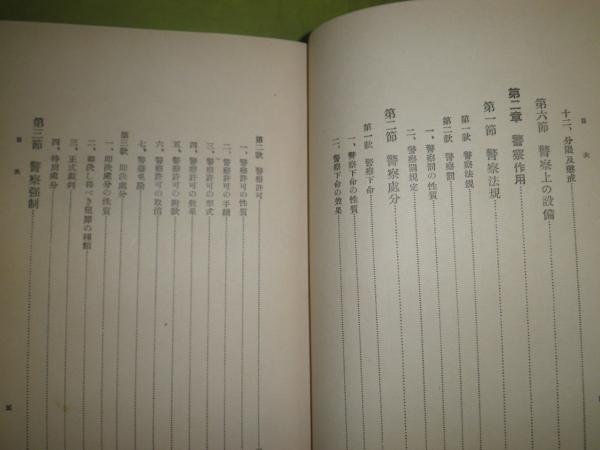 目次
十二、分限及懲戒
第六節 警察上の設備
第二章 警察作用
第一節 警察法規
第一款 警察法規
第二款 警察罰
一、警察罰の性質
二、警察罰規定
第二節 警察處分
第一款 警察下命
一、警察下命の性質
二、警察下命の效果
第二款 警察許可
一、警察許可の性質
二、警察許可の手續
三、警察許可の形式
四、警察許可の效果
五、警察許可の附款
六、警察許可の取消
七、警察免除
第三款 即決處分
一、即決處分の性質
二、即決し得べき犯罪の種類
三、正式裁判
四、特別處分
第三節 警察强制
目次
五